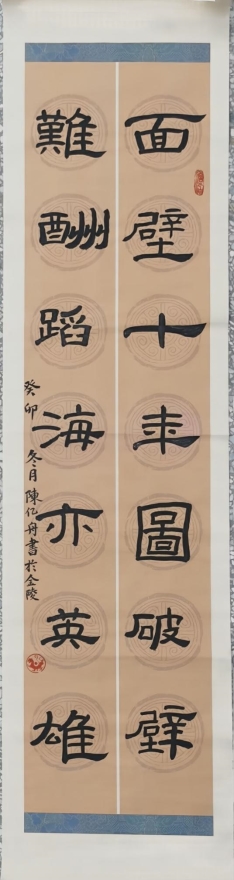 面壁十年圖破壁
難酬蹈海亦英雄
癸卯冬月陳亿舟書於金陵